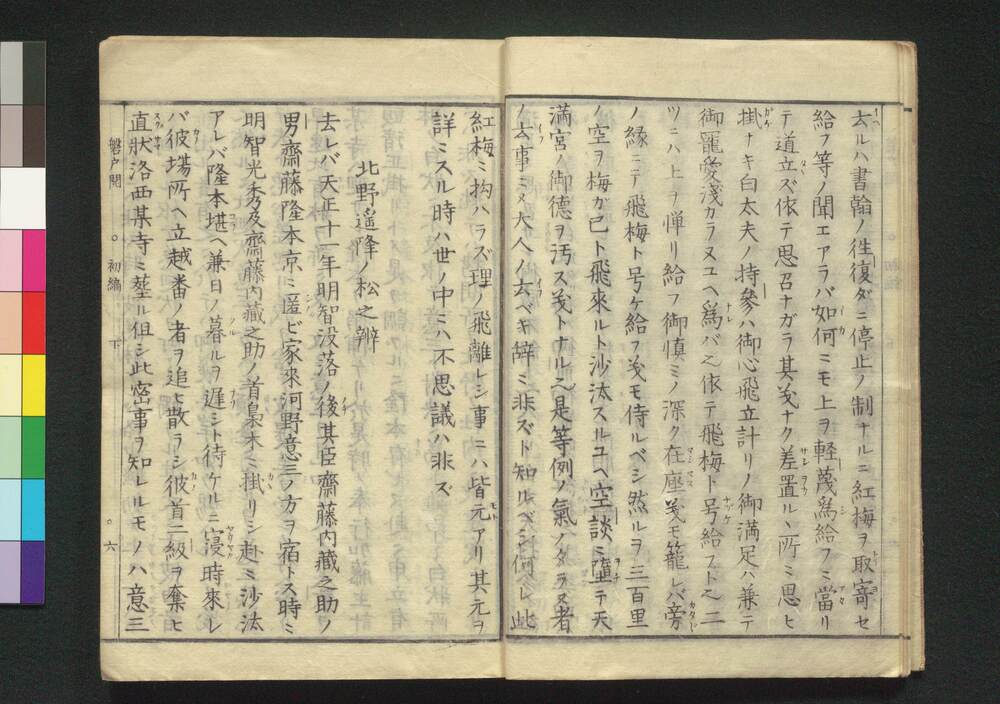 太ルハ書翰ノ徃復ダニ停止ノ制ナルニ紅梅ヲ取寄セ
給フ等ノ聞エアラバ如何ミモ上ヲ軽蔑爲給フミ當リ
テ道立ズ依テ思召ナガラ其㳒ナク差置ル丶所ミ思ヒ
掛ナキ白太夫ノ持參ハ御心飛立計リノ御満足ハ兼テ
御寵愛淺カラヌユヘ爲バ之依テ飛梅ト号給フト之三
ツニハ上ヲ憚リ給フ御慎ミノ深ク在座㳒モ籠レバ旁
ノ縁ニテ飛梅ト号ケ給フ㳒モ侍ルベシ然ルヲ三百里
ノ空ヲ梅ガ已ト飛來ルト沙汰スルユヘ空談ミ墮テ天
満宮ノ御德ヲ汚ス㳒トナル之是等例ノ氣ノ付ラヌ者
ノ云事ミメ大人ノ云ベキ辞ミ非ズト知ルベシ何レ此
紅梅ミ拘ハラズ理ノ飛離レシ事ニハ皆元アリ其元ヲ
詳ミスル時ハ世ノ中ミハ不思議ハ非ズ
北野遥隆ノ松之辨
去レバ天正十一年明智没落ノ後其臣齋藤内藏之助ノ
男齋藤隆本京ミ匿ビ家来河野意三ノ方ヲ宿トス時ミ
明智光秀及齋藤内藏之助ノ首梟木ミ掛リシ趣ミ沙汰
アレバ隆本堪ヘ兼日ノ暮ルヲ遲シト待ケルニ寢時來レ
バ彼場所ヘ立越番ノ者ヲ追ヒ散ラシ彼首二級ヲ奪ヒ
直狀洛西某寺ミ塟ル但シ此密事ヲ知レルモノハ意三
磐戸開 ○ 初編 下 ○六